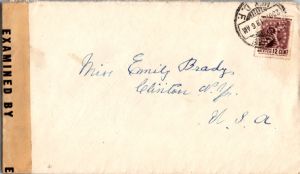 EXAMINED BY
E
Miss Emily Brady
Clinton N.Y.
U.S.A
12 CENT